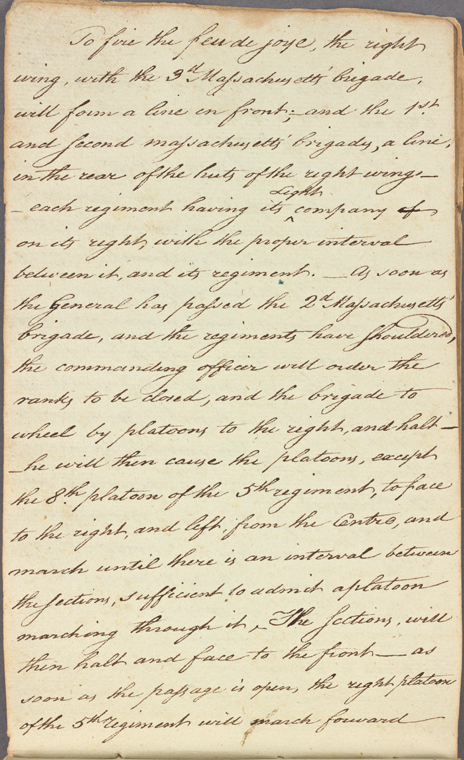 To fire the feu de joye, the right
wing, with the 3d Massachusetts' brigade,
will form a line in front; and the 1st
and second massachusetts' brigades, a line,
in the rear of the huts of the right wing —
Light
— each regiment having its ^ company
on its right, with the proper interval
between it, and its regiment. — As soon as
the General has passed the 2d Massachusetts'
brigade, and the regiments have shouldered,
the commanding officer will order the
ranks to be closed, and the brigade to
wheel by platoons to the right, and halt —
— he will then cause the platoons, except
the 8th platoon of the 5th regiment, to face
to the right, and left from the Centre, and
march until there is an interval between
the sections, sufficient to admit a platoon
marching through it. The sections, will
then halt and face to the front — as
soon as the passage is open, the right platoon
of the 5th regiment will march forward